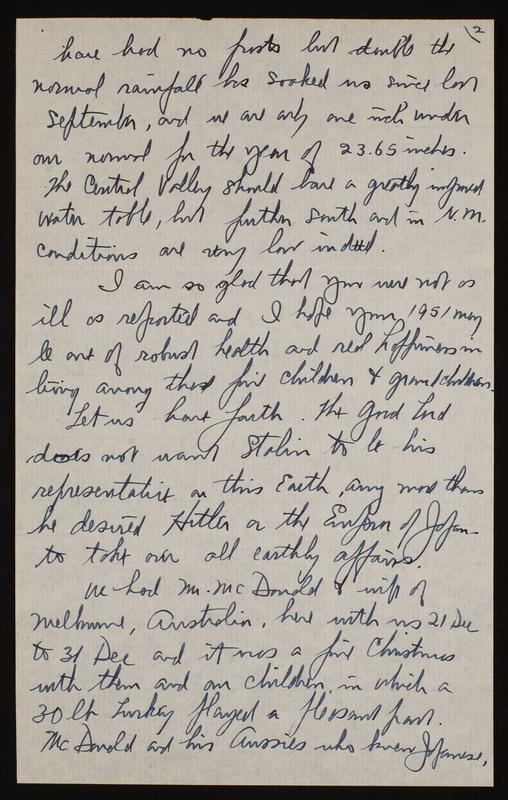 2
have had no frosts but double the
normal rainfall has soaked us since last
September, and we are only one inch under
our normal for the year of 23.65 inches.
The Central Valley should have a greatly improved
water table, but further South and in N.M.
conditions are very low indeed.
I am so glad that you were not as
ill as reported and I hope your 1951 may
be one of robust health and real happiness in
living among those fine children & grandchildren.
Let us have faith. The Good Lord
does not want Stalin to be his
representative on this Earth, any more than
he desired Hitler or the Emperor of Japan
to take over all earthly affairs.
We had Mr. McDonald & wife of
Melbourne, Australia, here with us 21 Dec
to 31 Dec and it was a fine Christmas
with them and our children, in which a
30 lb turkey played a pleasant part.
McDonald and his Aussies who knew Japanese,